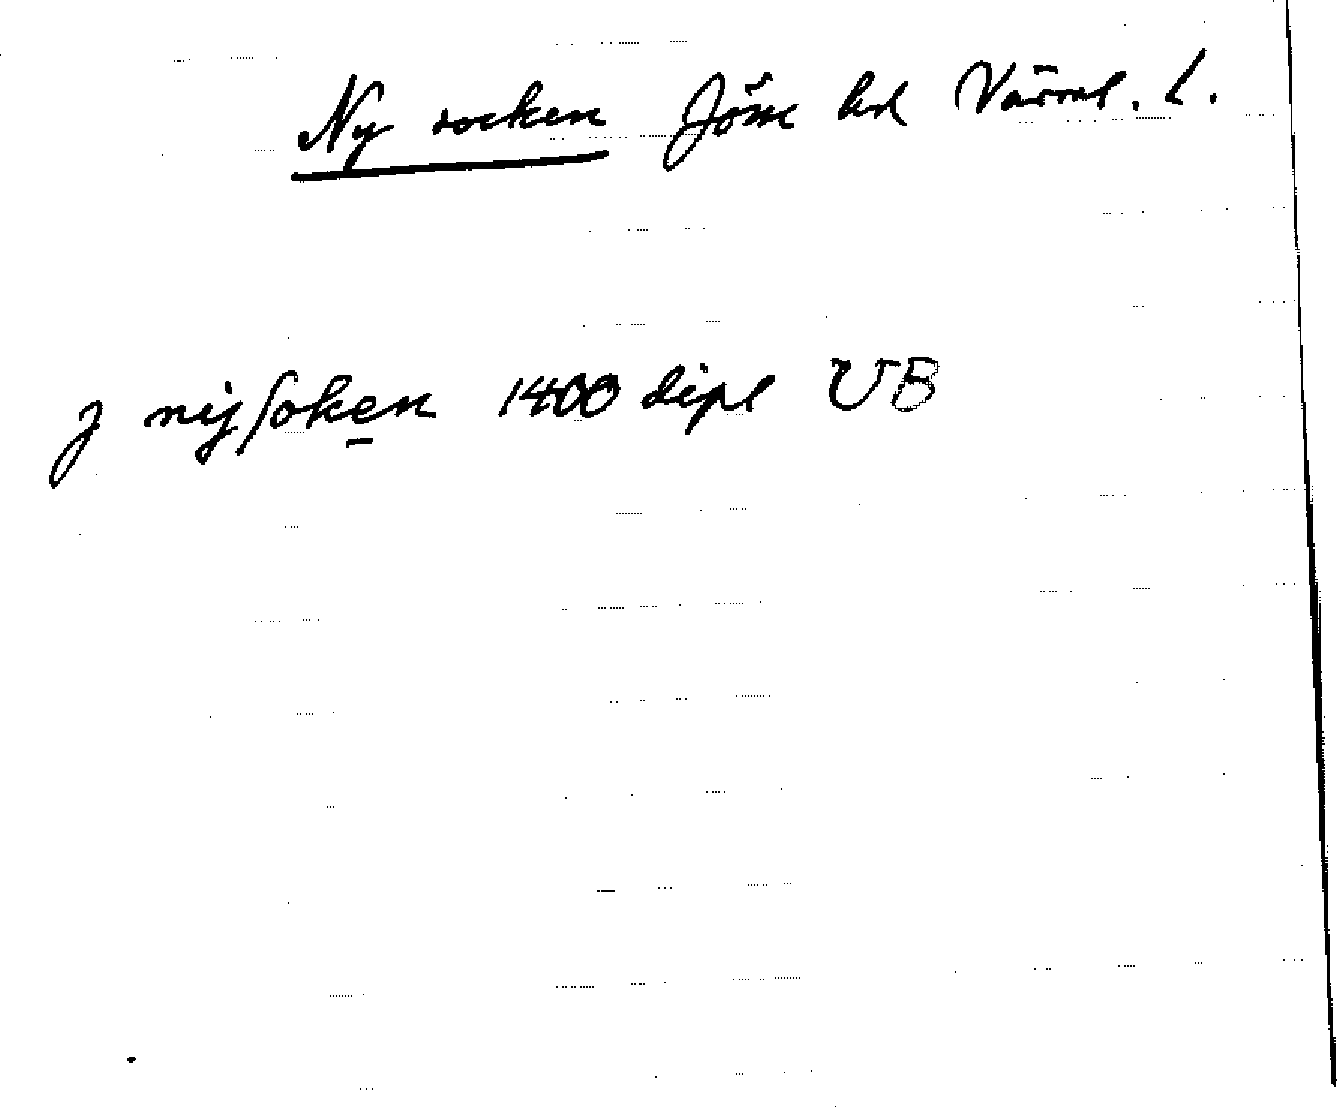 Ny socken Jösse hd Värml. L.
J nijsoken 1400 dipl UB